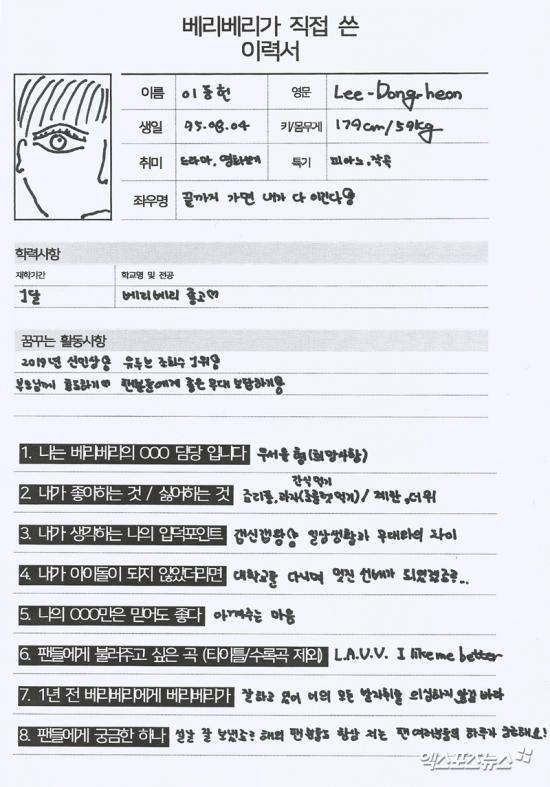 베리베리가 직접 쓴
이력서
이름 이동헌 영문 Lee-Dong-heon
생일 95.08.04 키/몸무게 179cm/59kg
취미 드라마, 영화보기 특기 피아노, 작곡
좌우명 끝까지 가면 내가 다 이긴다
학력사항
재학기간 학교명 및 전공
1달 베리베리 졸고♡
꿈꾸는 활동사항
2019년 신인상 유튜브 조회수 1위
부모님께 효도하기♡ 팬분들에게 좋은 무대 보답하기
1. 나는 베리베리의 OOO 담당 입니다 무서운 형(희망사항)
간식 먹기
2. 내가 좋아하는 것 / 싫어하는 것 과자(초콜릿 먹기) / 계란, 더위
3. 내가 생각하는 나의 입덕포인트 갭신갭왕 일상생활과 무대와의 차이
4. 내가 아이돌이 되지 않았더라면 대학교를 다니며 멋진 선배가 되었겠군요...
5. 나의 OOO만은 믿어도 좋다 아껴주는 마음
6. 팬들에게 불러주고 싶은 곡 (타이틀/수록곡 제외) L.A.U.V. I like me better
7. 1년 전 베리베리에게 베리베리가 잘하고 있어 너의 모든 발자취를 의심하지 않길 바라
8. 팬들에게 궁금한 하나 설날 잘 보냈나요? 해외 팬분들도 항상 저는 팬 여러분들의 하루가 궁금해요!
엑스포츠뉴스